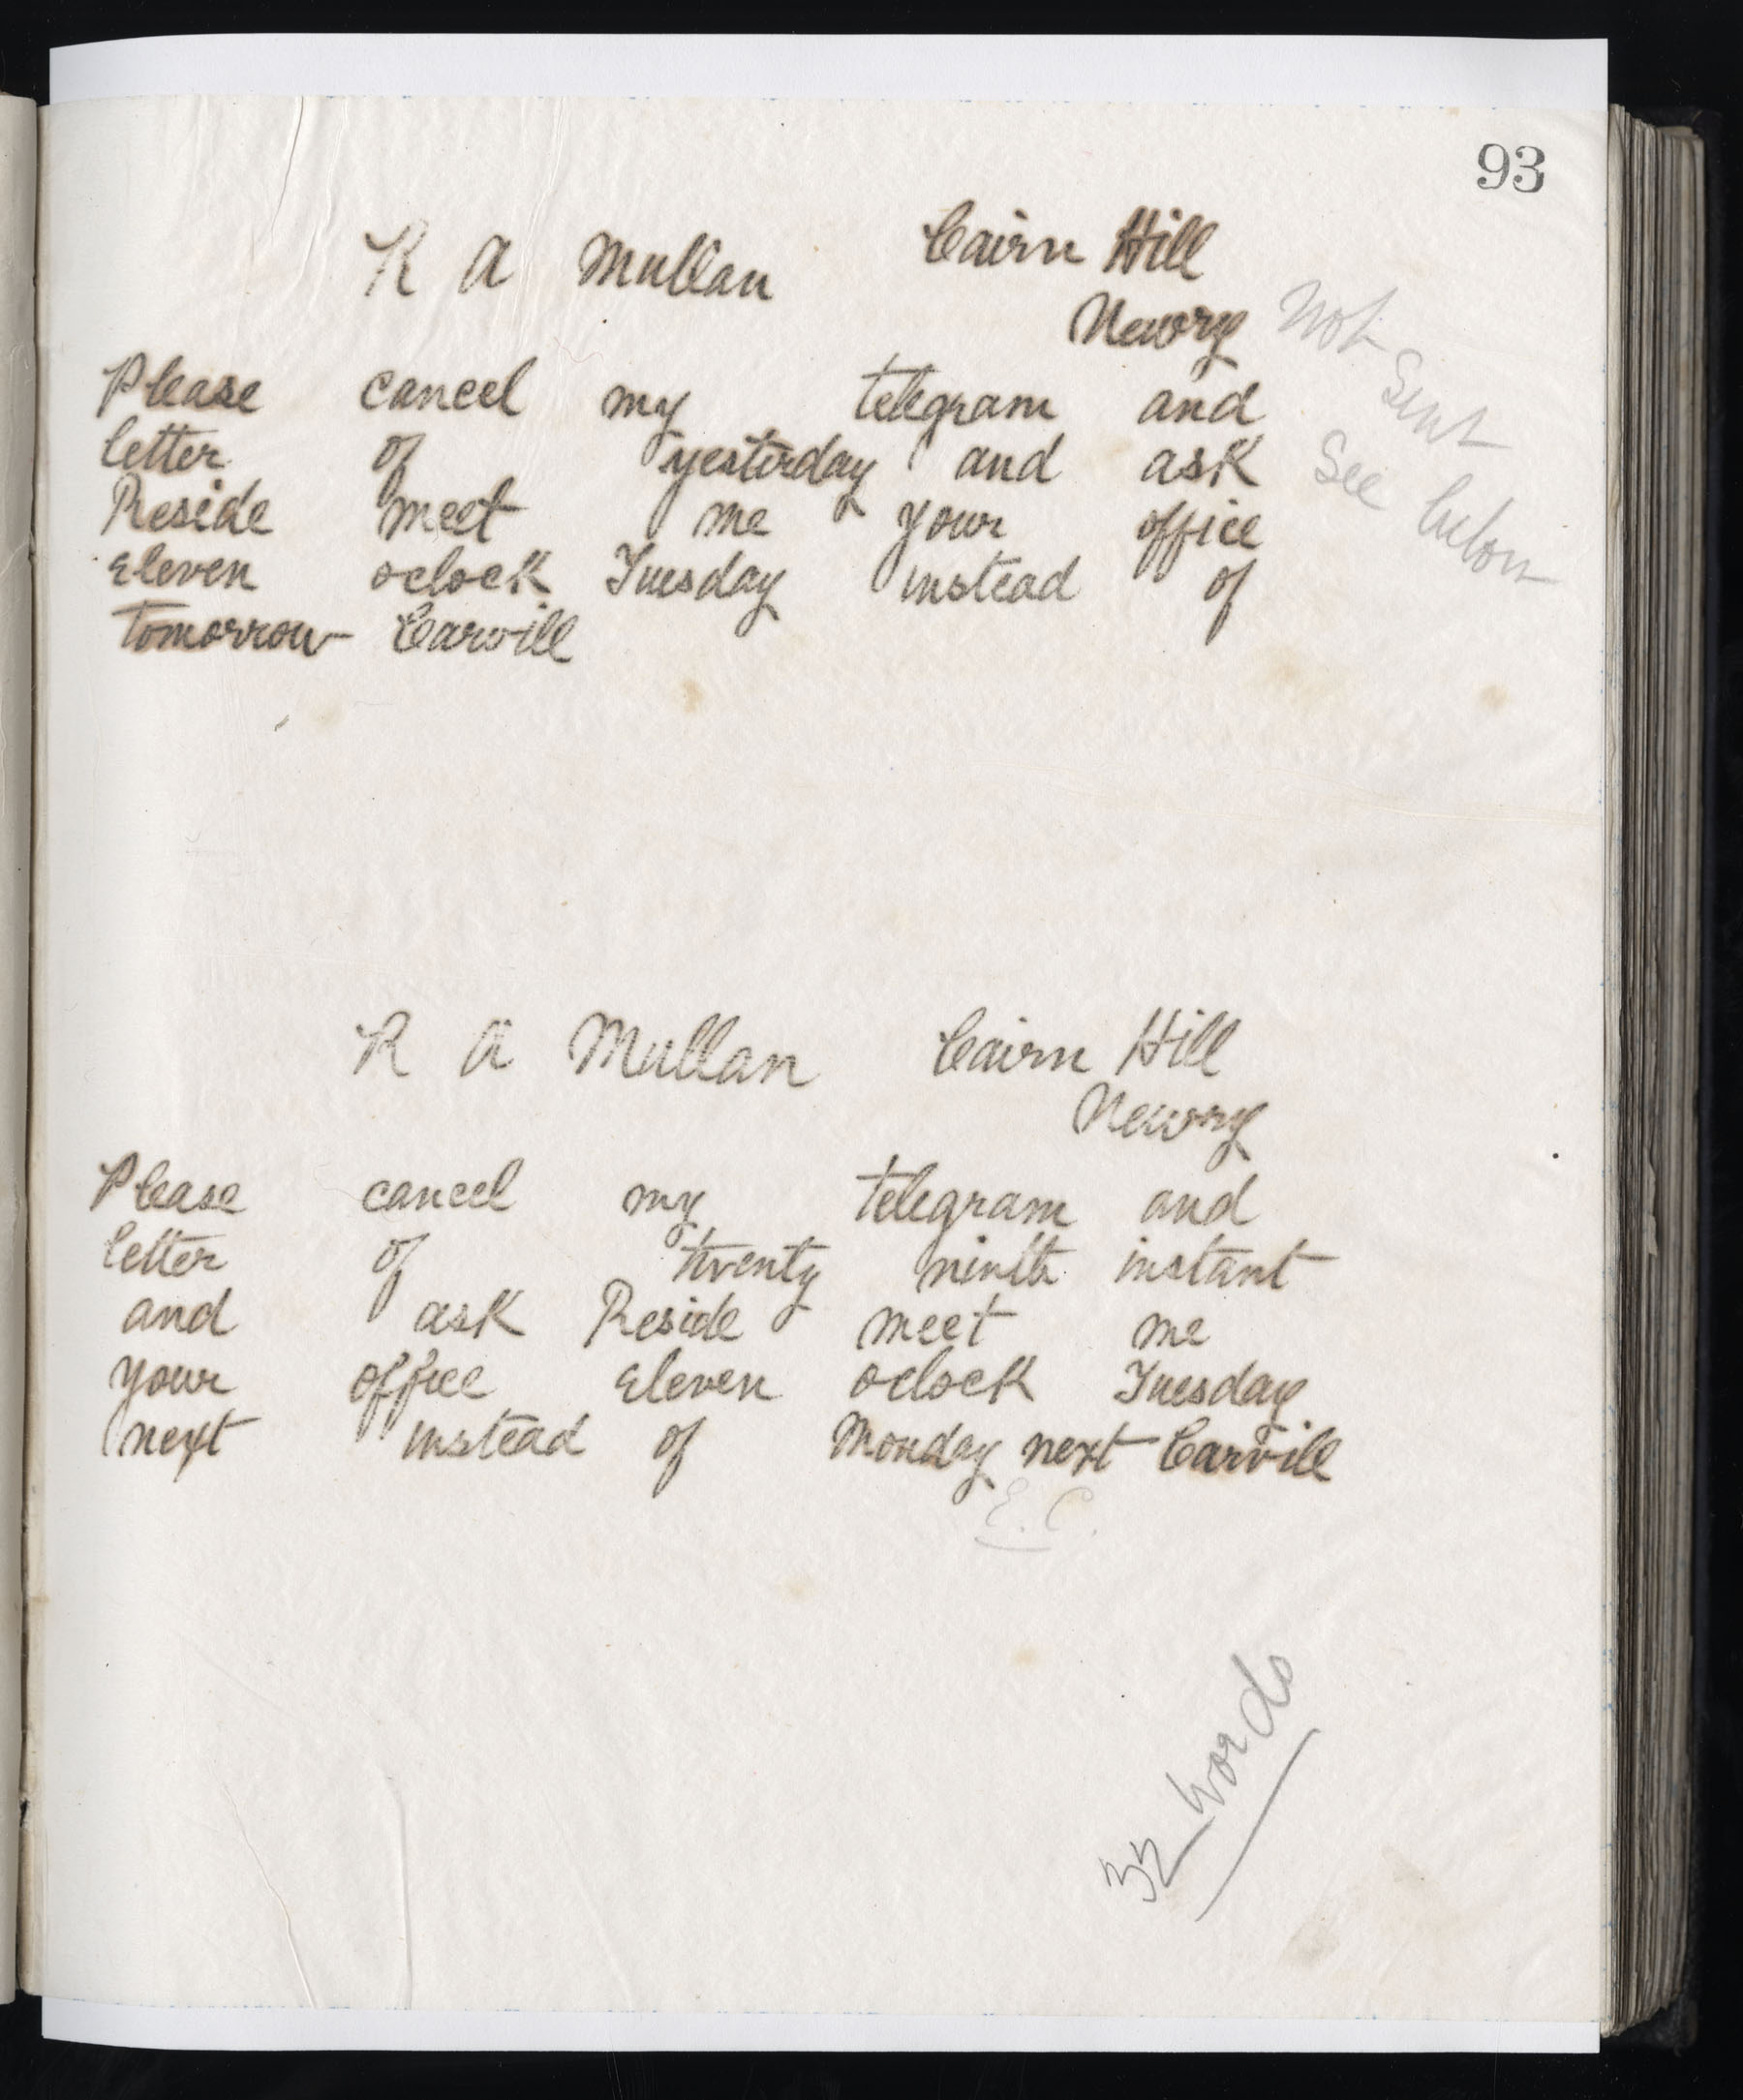 93
R A Mullan Cairn Hill
Newry
Not
Sent
See below
Please cancel my telegram and
letter of yesterday and ask
Reside meet me your office
eleven oclock Tuesday instead of
tomorrow Carvill
R A Mullan Cairn Hill
Newry
Please cancel my telegram and
letter of twenty ninth instant
and ask Reside meet me
your office eleven oclock Tuesday
next instead of Monday next Carvill
E. C.
32 words